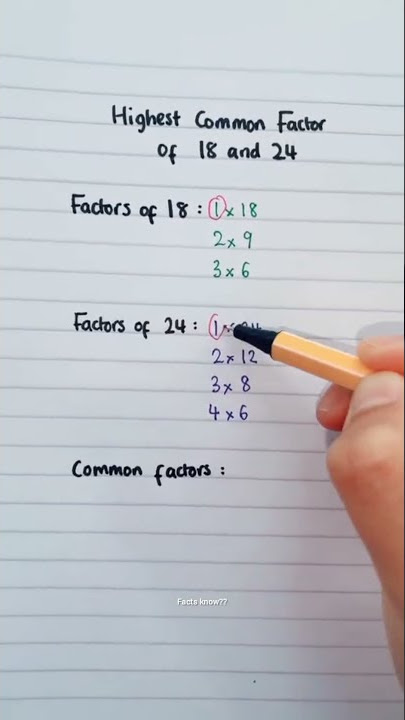 Highest Common Factor
of 18 and 24
Factors of 18 : 1 x 18
2 x 9
3 x 6
Factors of 24 : 1 x
2 x 12
3 x 8
4 x 6
Common factors :
Facts know??